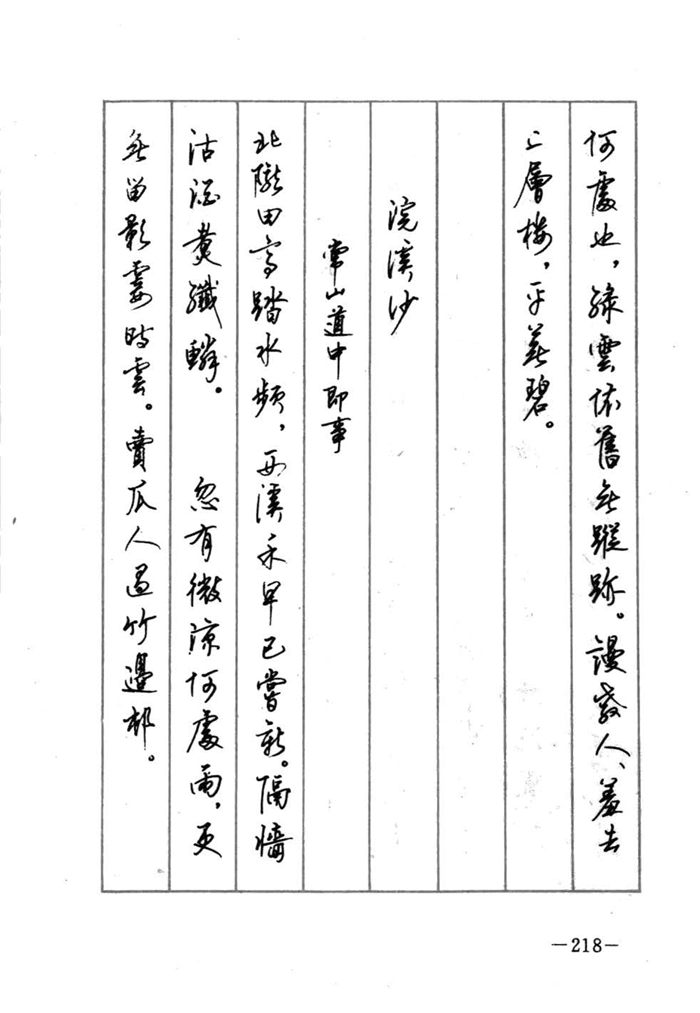 何處也，綠雲依舊無蹤跡。謾教人、羞去
上層樓，平蕪碧。
浣溪沙
常山道中即事
北隴田高踏水頻，西溪禾早已嘗新。隔牆
沽酒煮纖鱗。　　忽有微涼何處雨，更
無留影霎時雲。賣瓜人過竹邊村。
—218—